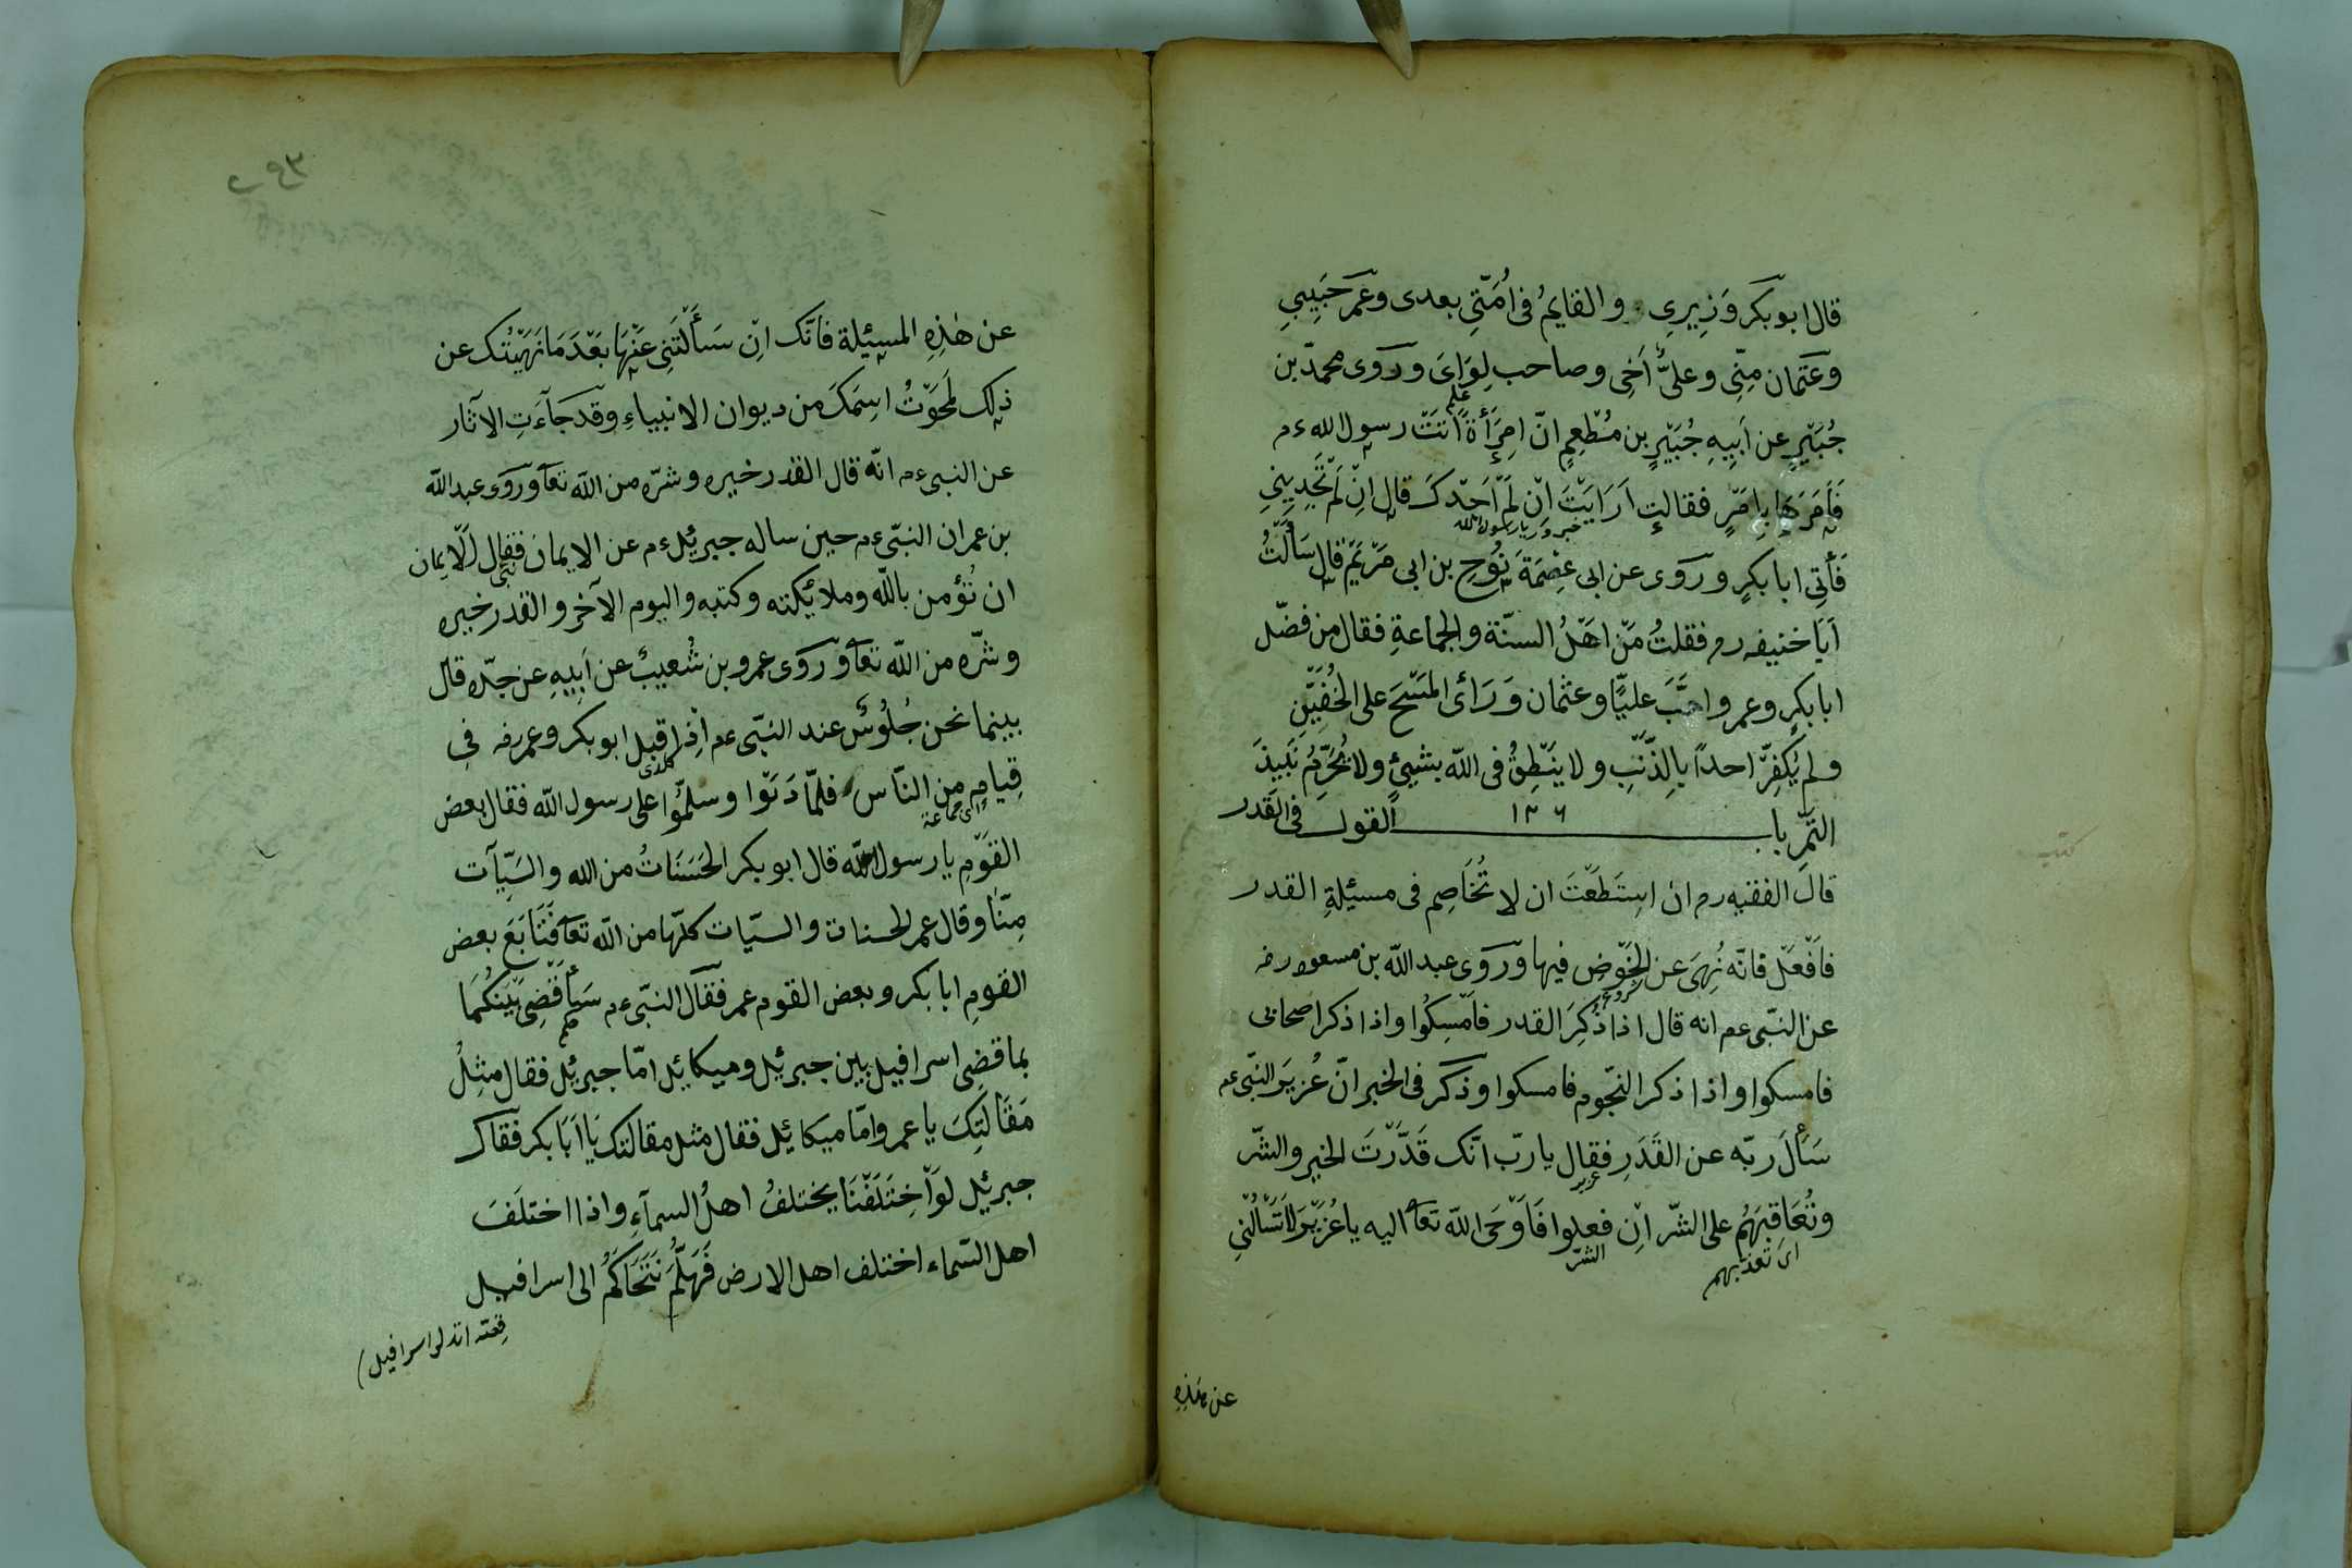 قال ابو بكر وَزِيرِى والقايمُ فى اُمَّتِى بعدى وعمر حَبِيبِي
وعثمان مِنِّى وعلىٌّ اَخِى وصاحب لِوَاىَ ورَوَى محمّد بن
جُبَيْرٍ عن اَبِيهِ جُبَيْرٍ بن مُطْعِمٍ انّ اِمرَأةً اَتَتْ رسول الله ءم
فَأَمَرَهَا بِاَمْرٍ فقالت اَرَايَتْ اِنْ لَمْ اَجِدْكَ قال اِنْ لَمْ تَجِدِينِي
يا رسول الله
فَأْتِى ابا بكرٍ ورَوى عن ابى عِصْمَةَ نُوحِ بن ابى مَرْيَمْ قال سَأَلْتُ
اَبَا حنيفه رح فقلتُ مَنْ اهْلُ السنّة والجماعةِ فقال من فضّل
ابا بكرٍ وعمر واحَبَّ عليًّا وعثمان وَرَاَى المَسْحَ على الخُفَّيْنِ
ولم يُكَفِّرْ احداً بالذّنْبِ ولا يَنْطِقُ فى الله بشيئٍ ولا يُحَرِّمُ نَبِيذَ
التّمْرِ باب ١٣٦ القول فى القَدر
قالَ الفقيه رح ان اسِتَطَعْتَ ان لا تُخَاصِم فى مسئيلةِ القدر
فافْعَلْ فانّه نُهِىَ عن الخَوْضِ فيها ورَوَى عبد الله بن مسعود رض
عن النّبى عم انه قال اذا ذُكِرَ القدر فاَمْسِكُوا واذا ذكر اصحابى
فامسكوا واذا ذكر النّجوم فامسكوا وذكر فى الخبر انّ عُزير النّبى عم
سَأَلَ ربّه عن القَدَرِ فقال يا ربّ انّك قَدَّرْتَ الخير والشّر
عزير
وتُعَاقِبُهُم على الشّر اِنْ فعلوا فَاَوْحَى الله تعا اليه يا عُزَيْرَ لا تَسْأَلْنِي
اى تعذبهم الشّر
عن هٰذِهِ
عن هٰذِهِ المسئيلة فانّك اِنْ سَأَلْتَنِى عَنْهَا بَعْدَ مَا نَهَيْتُك عن
ذلك لَمَحَوْتُ اسِمَكَ من ديوان الانبياءِ وقد جَآءَتِ الآثار
عن النبىءم انّه قال القدر خيره وشرّه من الله تعا ورَوَى عبد الله
بن عمر ان النبّىءم حين ساله جبريئلءم عن الايمان فقال اَلاِيمان
ان تُؤمن بالله وملائيكته وكتبه واليوم الآخر والقدر خيره
وشرّه من الله تعا ورَوى عمرو بن شُعيب عن اَبِيهِ عن جدّه قال
بينما نحن جُلُوسٌ عند النبّى عم اِذْ اقبل ابو بكر وعمر رض فى
قِيامٍ من النّاس فلمّا دَنَوْا وسلّمُوا على رسول الله فقال بعض
اى جماعة
القَوْمِ يا رسول الله قال ابو بكر الحَسَنَاتُ من الله والسَيّآت
مِنّا وقال عمر الحسنات والسيّات كلّها من الله تعا فَتَابَعَ بعض
القومِ ابا بكر وبعض القوم عمر فقال النبّىءم سَأَقْضِى بَيْنَكُمَا
بما قضى اسرافيل بين جبريئل وميكائيل امّا جبريئل فقال مثِلُ
مَقَالَتِكَ يا عمر وامّا ميكائيل فقال مثل مقالتك يَا اَبَا بكر فقال
جبرئيل لَوْ اَخِتَلَفْنَا يختلفُ اهلُ السمآءِ واذا اختلَفَ
اهل السّماء اختلف اهل الارض فَهَلُمَّ نَتَحَاكَمُ الى اسرافيل